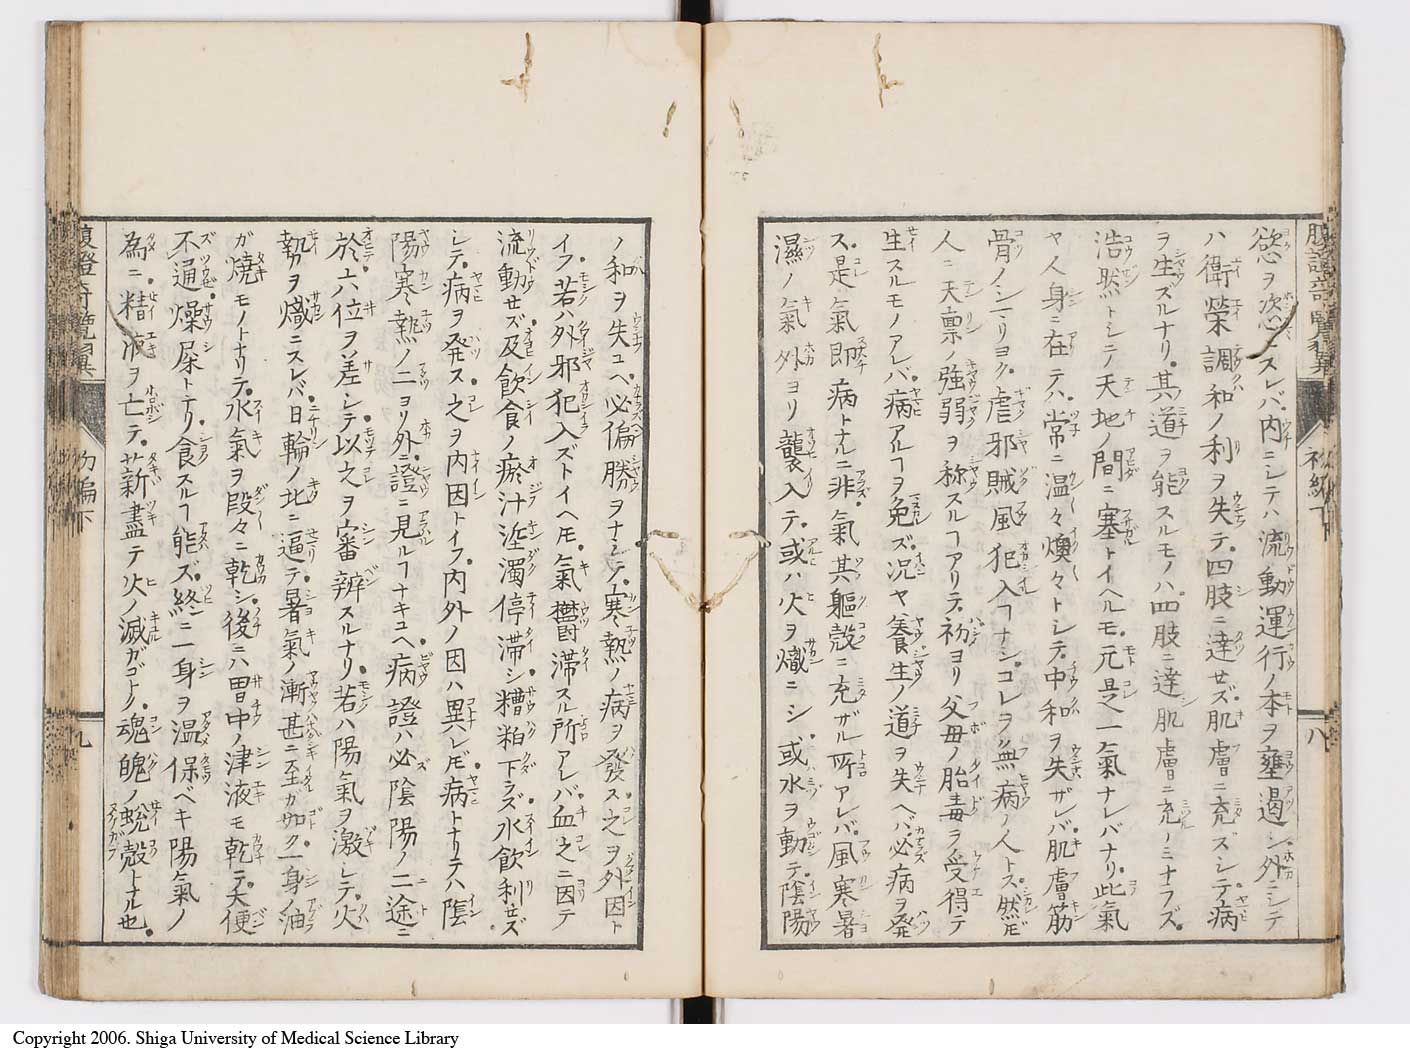 慾ヲ恣ニスレバ内ニシテハ流動運行ノ本ヲ壅遏シ外ニシテ
ハ衛榮調和ノ利ヲ失テ四肢ニ達セズ肌膚ニ充ズシテ病
ヲ生ズルナリ其道ヲ能スルモノハ四肢ニ達シ肌膚ニ充ノミナラズ
浩然トシテノ天地ノ間ニ塞トイヘルモ元是一氣ナレバナリ此氣
ヤ人身ニ在テハ常ニ温々燠々トシテ中和ヲ失ザレバ肌膚筋
骨ノシマリヨク虐邪賊風犯入ヿナシコレヲ無病ノ人トス然ドモ
人ニ天禀ノ強弱ヲ称スルヿアリテ初ヨリ父母ノ胎毒ヲ受得テ
生スルモノアレバ病アルヿヲ免ズ况ヤ養生ノ道ヲ失ヘバ必病ヲ発
ス是氣即病トナルニ非氣其軀殻ニ充ザル所アレバ風寒暑
濕ノ氣外ヨリ襲入テ或ハ火ヲ熾ニシ或水ヲ動テ陰陽
初編下
八
ノ和ヲ失ユヘ必偏勝ヲナシテ寒熱ノ病ヲ發ス之ヲ外因ト
イフ若ハ外邪犯入ズトイヘドモ氣欝滞スル所アレバ血之ニ因テ
流動セズ及飲食ノ瘀汁涎濁停滞シ糟粕下ラズ水飲利セズ
シテ病ヲ発ス之ヲ内因トイフ内外ノ因ハ異レドモ病トナリテハ陰
陽寒熱ノ二ヨリ外ニ證ニ見ルヿナキユヘ病證ハ必陰陽ノ二途ニ
於六位ヲ差シテ以之ヲ審辨スルナリ若ハ陽氣ヲ激シテ火
熱ヲ熾ニスレバ日輪ノ北ニ逼テ暑氣ノ漸甚ニ至ガ如ク一身ノ油
ガ燒モノトナリテ水氣ヲ段々ニ乾シ後ニハ胃中ノ津液モ乾テ大便
不通燥屎トナリ食スルヿ能ズ終ニ一身ヲ温保ベキ陽氣ノ
為ニ精液ヲ亡テ薪盡テ火ノ滅ガゴトク魂魄ノ蛻殻トナル也
腹證奇覽翼
初編下
九
Copyright 2006. Shiga University of Medical Science Library